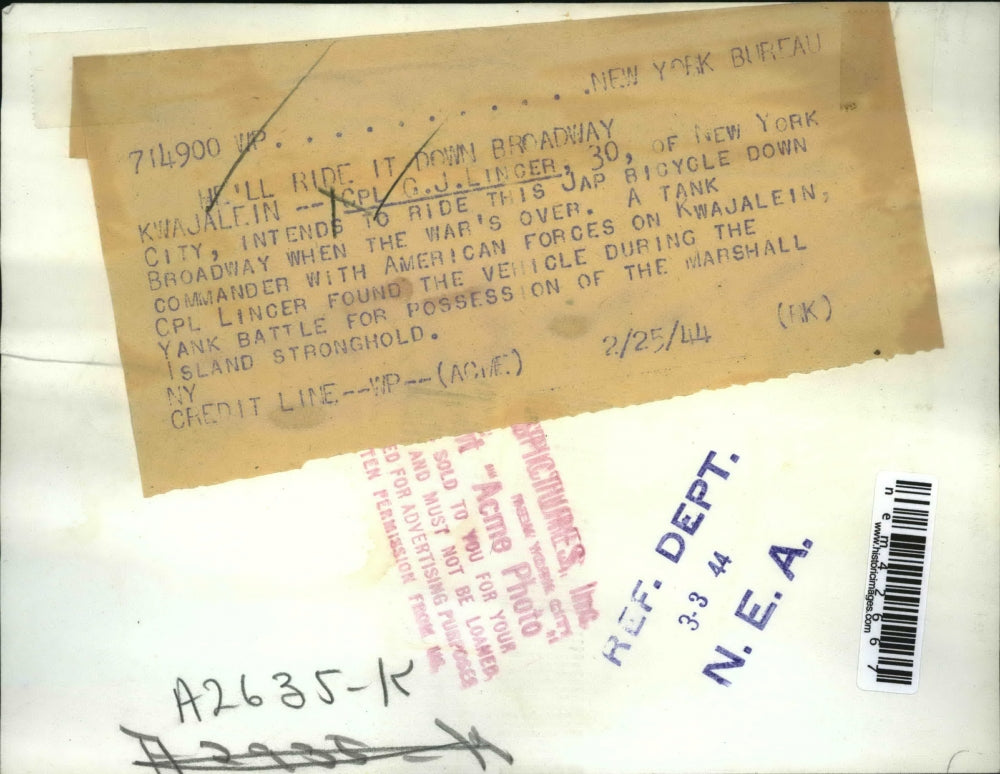 NEW YORK BUREAU
714900 WP. . . . . . . . . . . .
HE'LL RIDE IT DOWN BROADWAY
KWAJALEIN --CPL G.J.LINGER, 30, OF NEW YORK
CITY, INTENDS TO RIDE THIS JAP BICYCLE DOWN
BROADWAY WHEN THE WAR'S OVER. A TANK
COMMANDER WITH AMERICAN FORCES ON KWAJALEIN,
CPL LINGER FOUND THE VEHICLE DURING THE
YANK BATTLE FOR POSSESSION OF THE MARSHALL
ISLAND STRONGHOLD.
NY
CREDIT LINE--WP--(ACME) 2/25/44 (RK)
SPICTURES, Inc.
NEW YORK CITY
it "Acme Photo
SOLD TO YOU FOR YOUR
AND MUST NOT BE LOANED
ED FOR ADVERTISING PURPOSES
TEN PERMISSION FROM US.
REF. DEPT.
3-3 44
N. E. A.
nem42667
www.historicimages.com
A2635-K